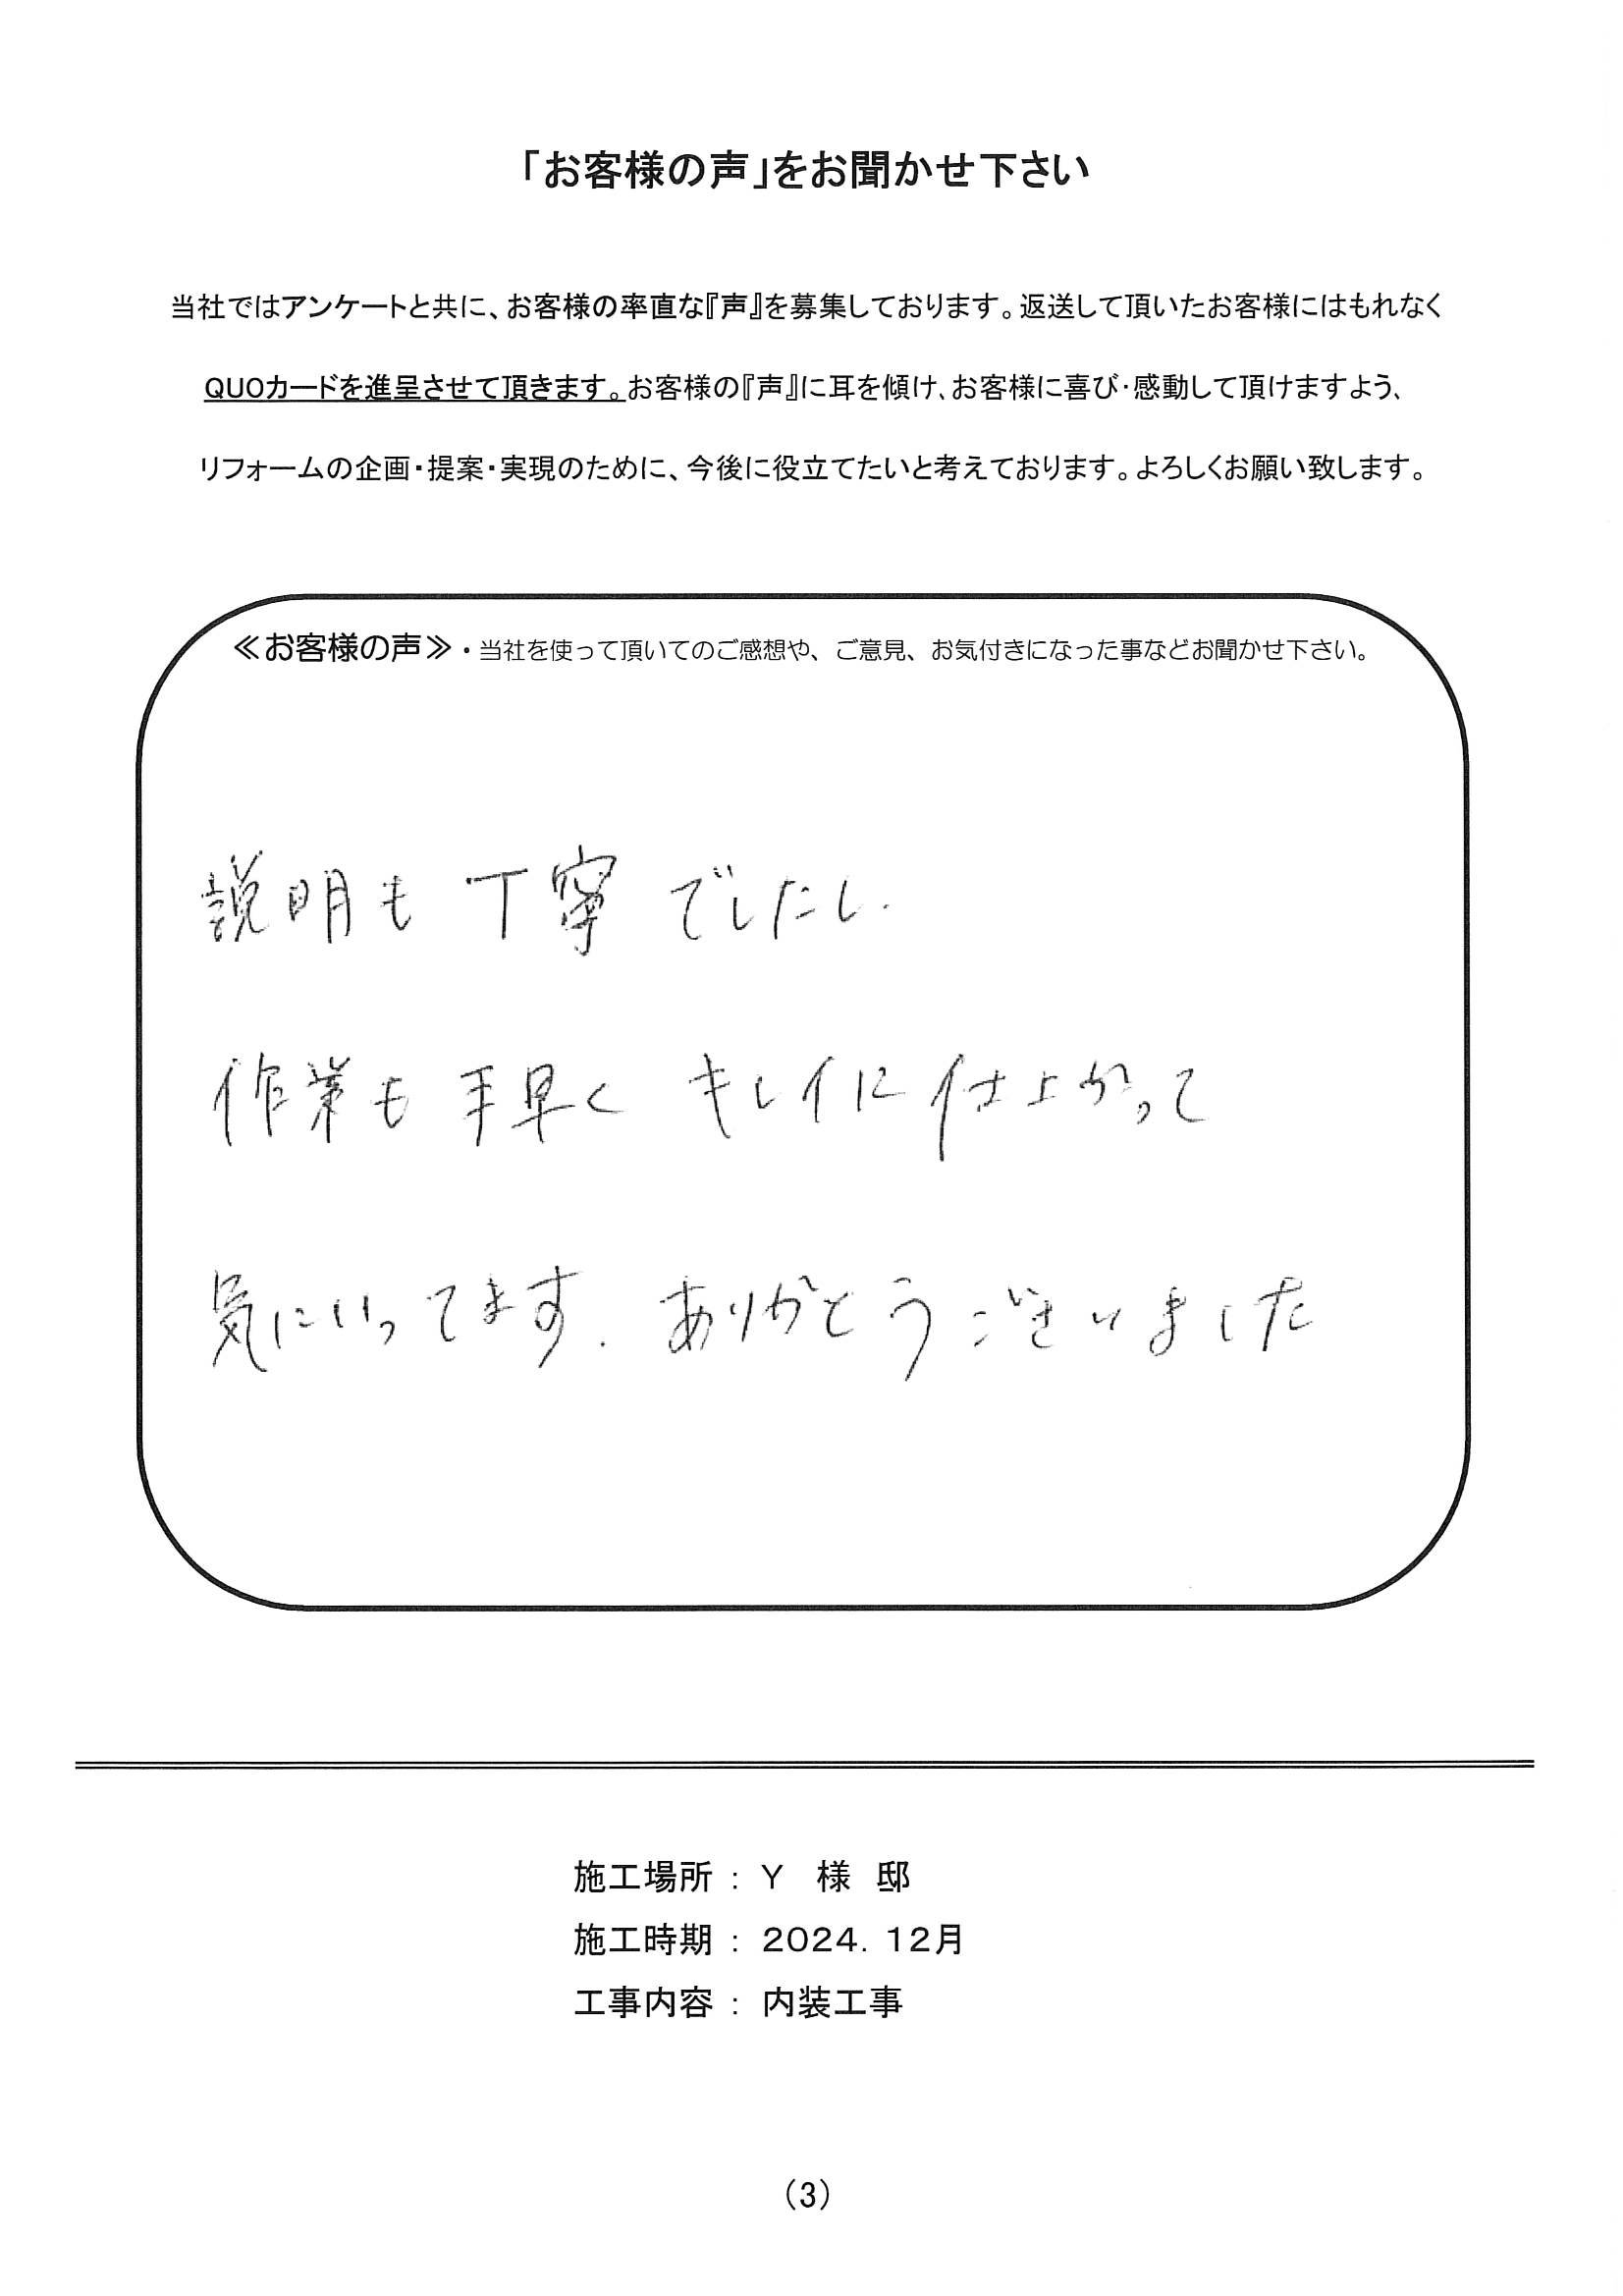 「お客様の声」をお聞かせ下さい
当社ではアンケートと共に、お客様の率直な『声』を募集しております。返送して頂いたお客様にはもれなく
QUOカードを進呈させて頂きます。お客様の『声』に耳を傾け、お客様に喜び・感動して頂けますよう、
リフォームの企画・提案・実現のために、今後に役立てたいと考えております。よろしくお願い致します。
≪お客様の声≫・当社を使って頂いてのご感想や、ご意見、お気付きになった事などお聞かせ下さい。
説明も丁寧でしたし.
作業も手早く キレイに仕上がって
気にいってます. ありがとうございました
施工場所 : Y 様 邸
施工時期 : 2024. 12月
工事内容 : 内装工事
(3)